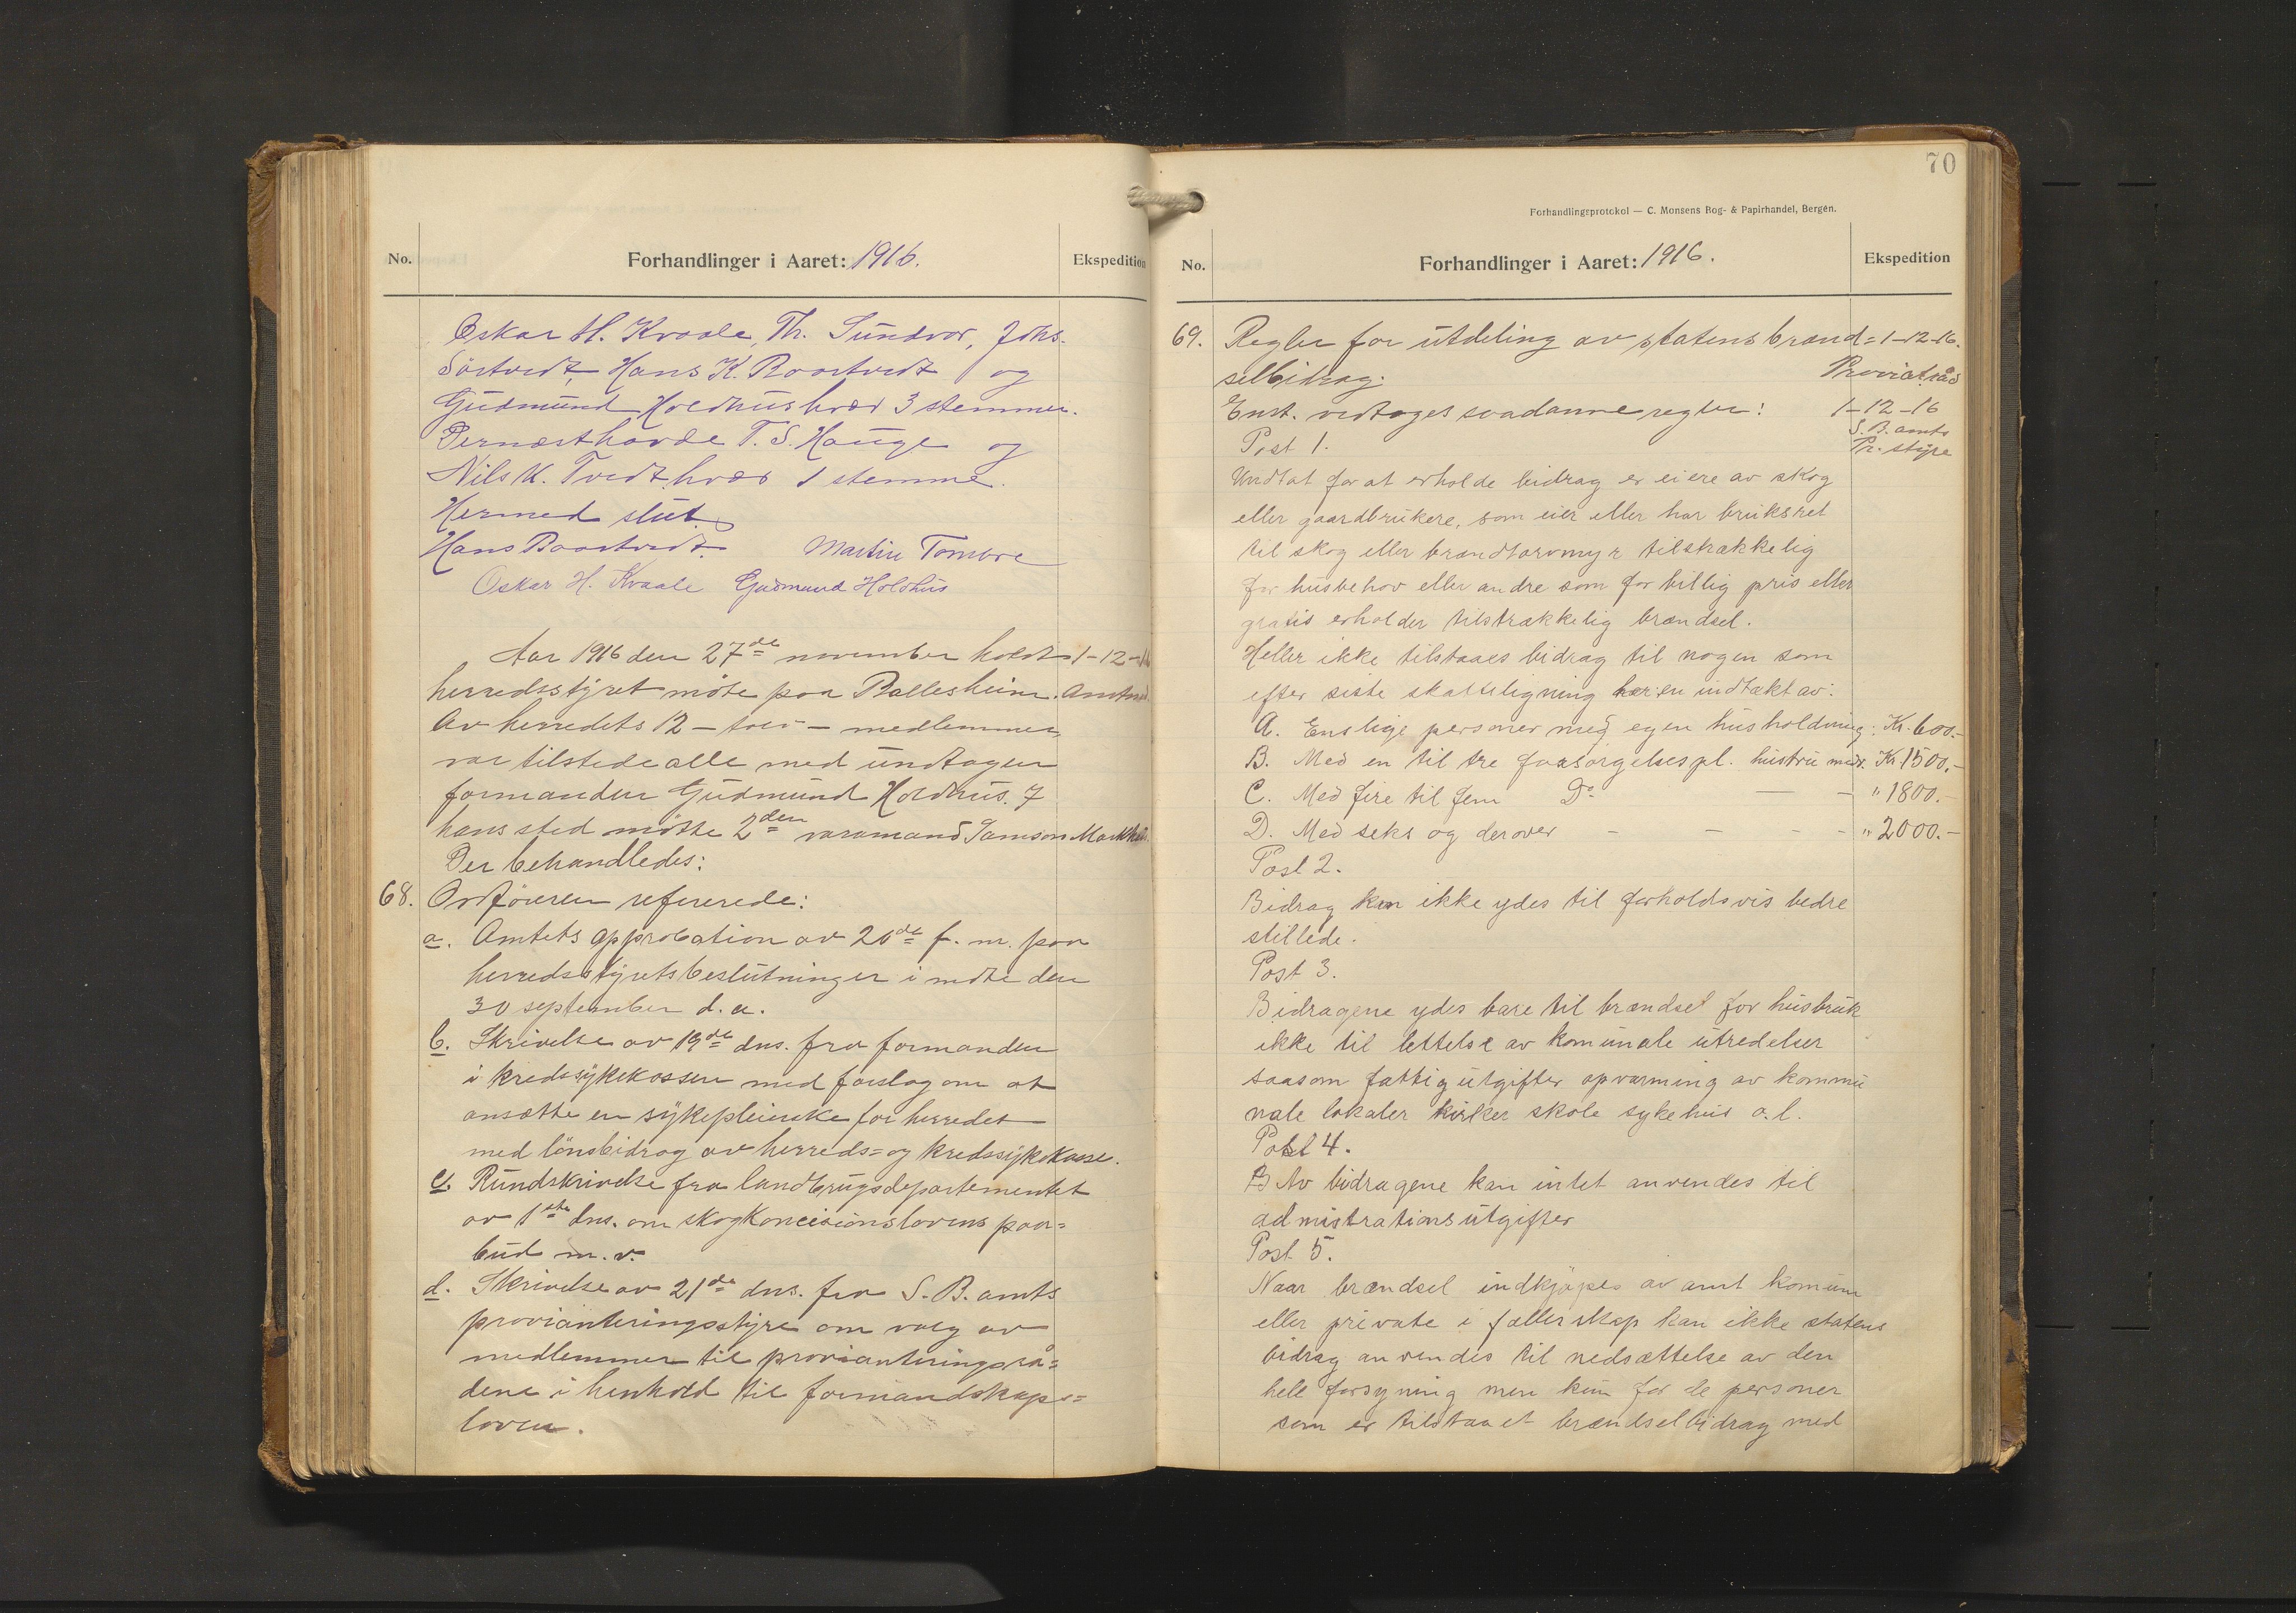 No.
Forhandlinger i Aaret: 1916.
Ekspedition
Oskar H. Kvaale, Th. Sundvor, Johs.
Sörtvedt, Hans K. Roortvedt og
Gudmund Holdhus hver 3 stemmer.
Dernæst havde T. S. Hauge og
Nils K. Tvedt hver 1 stemme.
Hermed slut.
Hans Roortvedt. Martin Tombre
Oskar H. Kvaale Gudmund Holdhus
Aar 1916 den 27de november holdt 1-12-16
herredsstyret möte paa Ballesheim. Amtmd.
Av herredets 12 - tolv - medlemmer
var tilstede alle med undtagen
formanden Gudmund Holdhus. I
hans sted mötte 2den varamand Samson Markhus.
Der behandledes:
68. Ordföreren refererede:
a. Amtets approbation av 20de f. m. paa
herredsstyrets beslutninger i möte den
30 september d. a.
b. Skrivelse av 19de dns. fra formanden
i kredssykekassen med forslag om at
ansætte en sykepleierske for herredet
med lönsbidrag av herreds= og kredssykekasse.
c. Rundskrivelse fra landbrugsdepartementet
av 1ste dns. om skogkoncesionslovens paa=
bud m. v.
d. Skrivelse av 21de dns. fra S. B. amts
provianteringsstyre om valg av
medlemmer til provianteringsrå=
dene i henhold til formandskaps=
loven.
70
Forhandlingsprotokol — C. Monsens Bog- & Papirhandel, Bergen.
No.
Forhandlinger i Aaret: 1916.
Ekspedition
69. Regler for utdeling av statens brænd= 1-12-16.
selbidrag. Proviatråd
Enst. vedtoges saadanne regler: 1-12-16
S. B. amts
Post 1. Pr. styre
Undtat for at erholde bidrag er eiere av skog
eller gaardbrukere, som eier eller har bruksret
til skog eller brændtorvmyr tilstrækkelig
for husbehov eller andre som for billig pris eller
gratis erholder tilstrækkelig brændsel.
Heller ikke tilstaaes bidrag til nogen som
efter siste skatteligning har en indtækt av:
A. Enslige personer med egen husholdning: Kr. 600.-
B. Med en til tre forsørgelsespl. hustru medr. Kr 1500.-
C. Med fire til fem Do. — - " 1800.-
D. Med seks og derover - - - - " 2000.-
Post 2.
Bidrag kan ikke ydes til forholdsvis bedre
stillede.
Post 3.
Bidragene ydes bare til brændsel for husbruk
ikke til lettelse av komunale utredelser
saasom fattigutgifter opvarming av kommu
nale lokaler kirker skole sykehus o. l.
Post 4.
Av bidragene kan intet anvendes til
admistrationsutgifter
Post 5.
Naar brændsel indkjøpes av amt komun
eller private i fællerskap kan ikke statens
bidrag anvendes til nedsættelse av den
hele forsyning men kun for de personer
som er tilstaaet brændselbidrag med